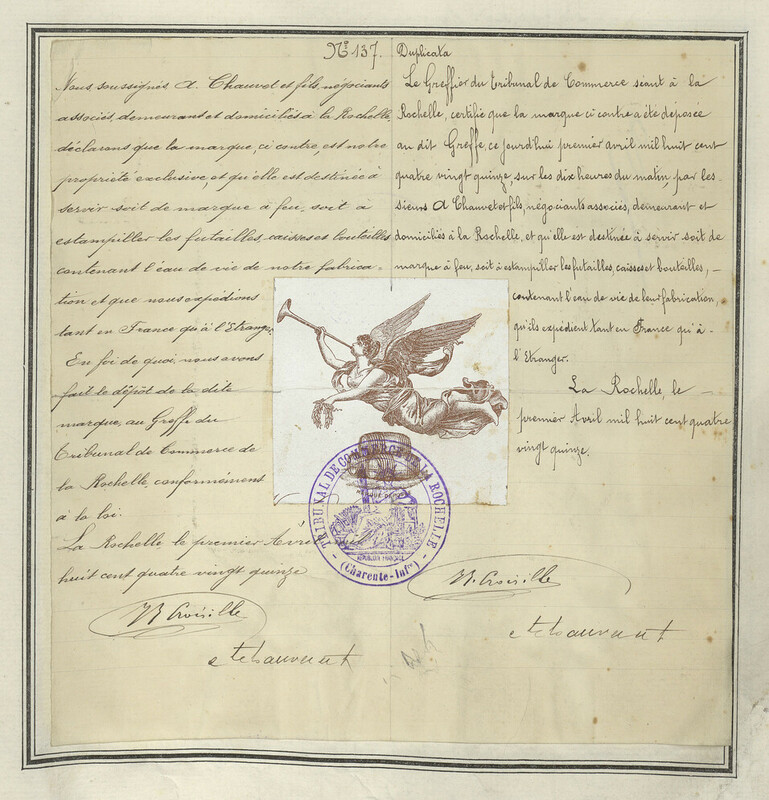 N° 137. Duplicata
Nous soussignés A. Chauvet et fils, négociants
associés, demeurant et domiciliés à la Rochelle,
déclarons que la marque, ci contre, est notre
propriété exclusive, et qu'elle est destinée à
servir soit de marque à feu, soit à
estampiller les futailles, caisses et bouteilles
contenant l'eau de vie de notre fabrica-
tion et que nous expédions
tant en France qu'à l'Etranger.
En foi de quoi, nous avons
fait le dépôt de la dite
marque, au Greffe du
Tribunal de Commerce de
la Rochelle, conformément
à la loi.
La Rochelle, le premier Avril
huit cent quatre vingt quinze
Le Greffier du tribunal de Commerce séant à la
Rochelle, certifie que la marque ci contre a été déposée
au dit Greffe, ce jourd'hui premier avril mil huit cent
quatre vingt quinze, sur les dix heures du matin, par les-
sieurs A Chauvet et fils, négociants associés, demeurant et
domiciliés à la Rochelle, et qu'elle est destinée à servir soit de
marque à feu, soit à estampiller les futailles, caisses et bouteilles, -
contenant l'eau de vie de leur fabrication,
qu'ils expédient tant en France qu'à -
l'Etranger.
La Rochelle, le -
premier Avril mil huit cent quatre
vingt quinze.
TRIBUNAL DE COMMERCE DE LA ROCHELLE
REPUBLIQUE FRANÇAISE
(Charente-Infre)